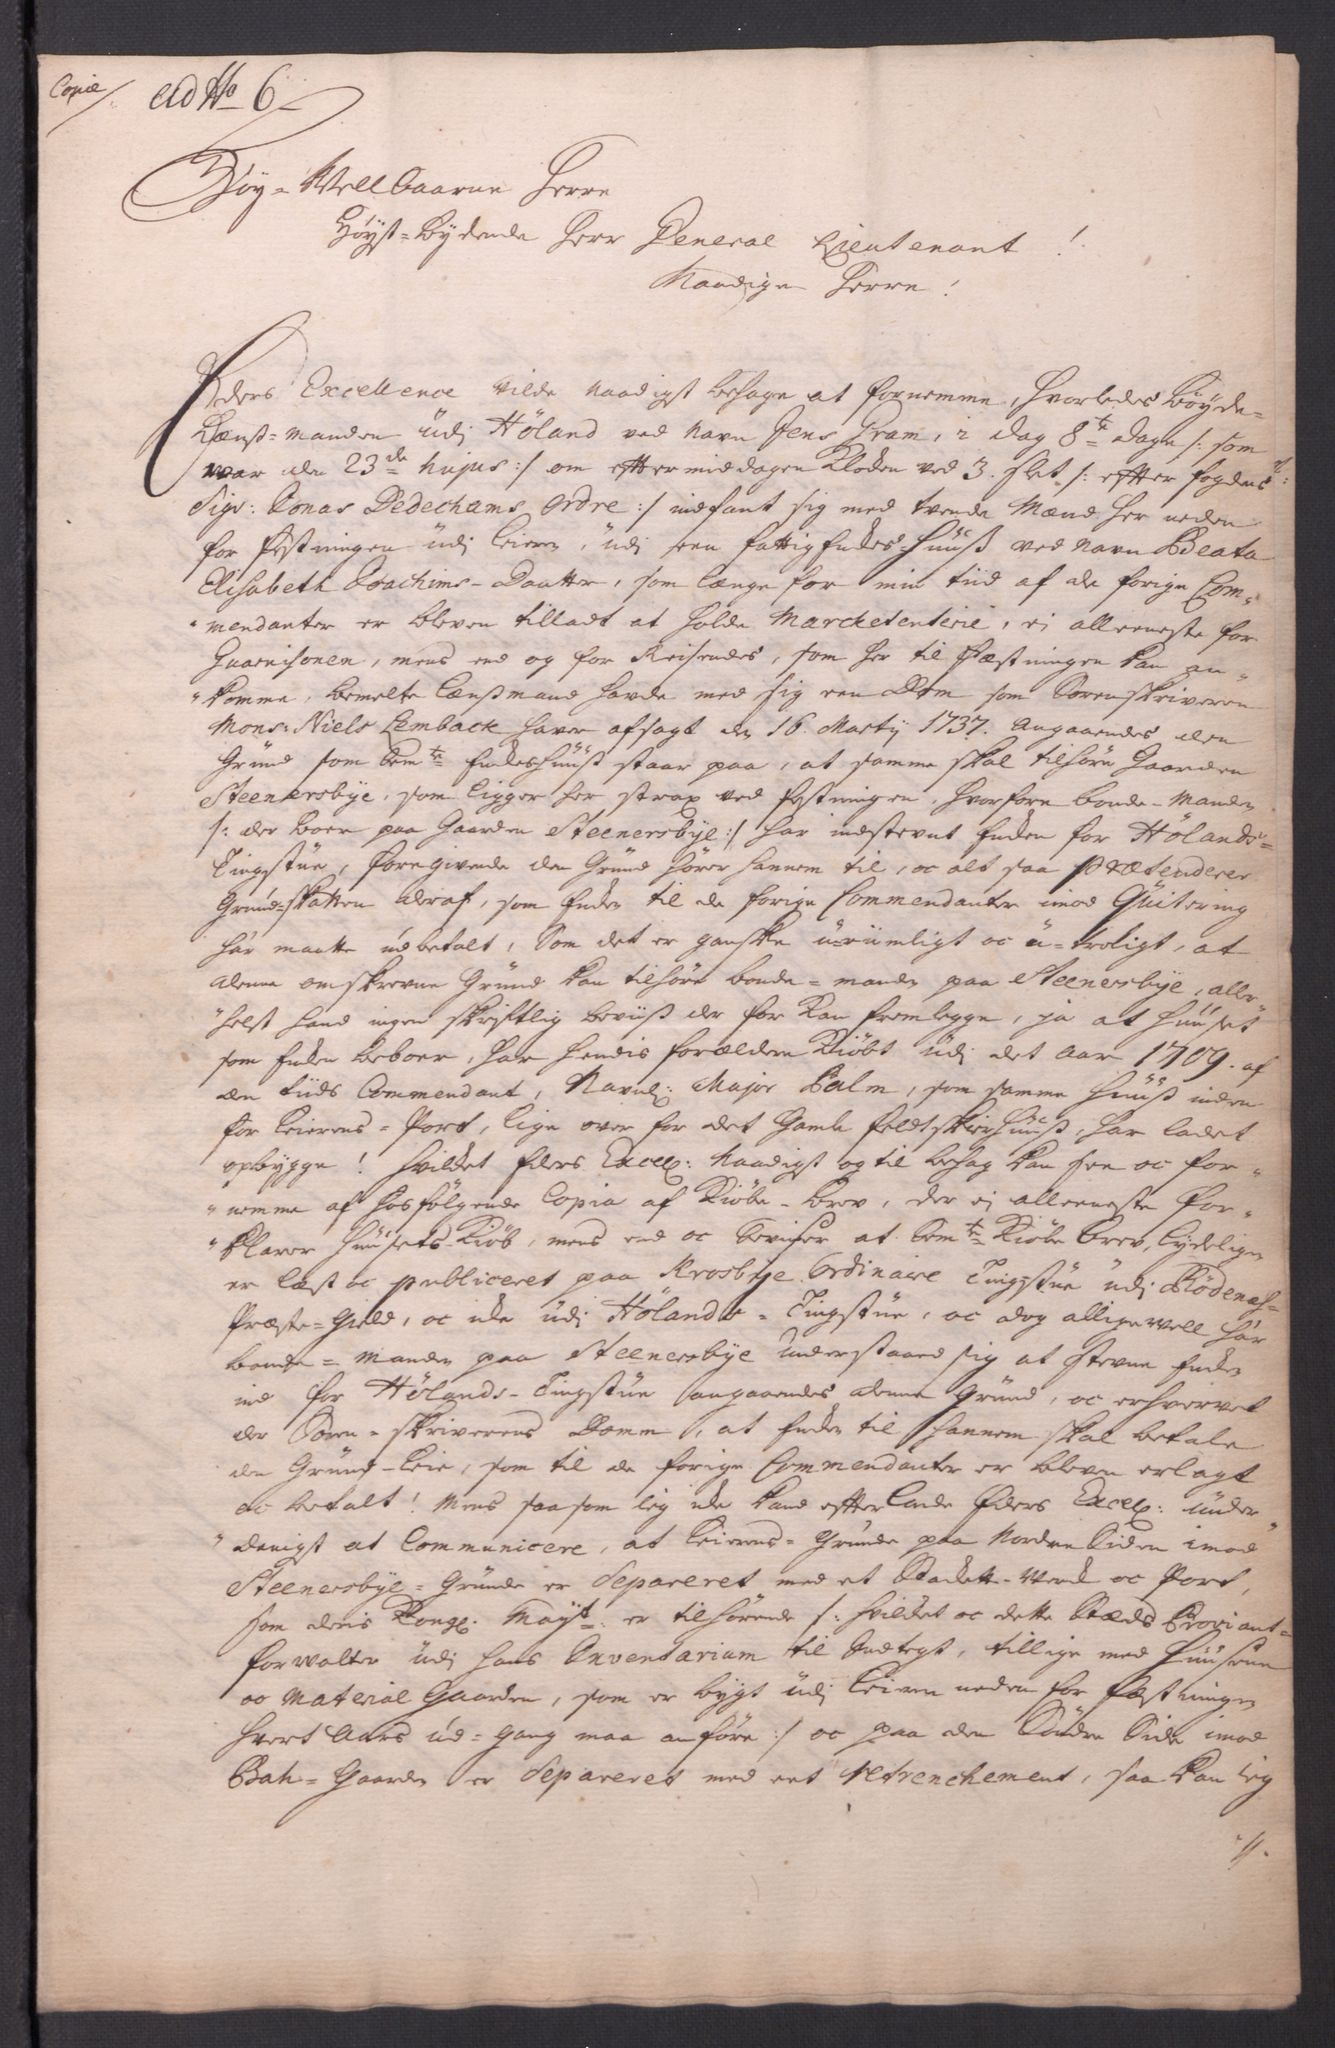 Copie/. ad No 6
Høy-Wellbaarne Herre
Høyst-Bydende Herr General Lieutenant!
Naadigen Herre!
Eders Excellence vilde naadigst behage at fornemme, hvorledes Bøyde-
Lænss-manden udj Höland ved navn Jens Gram, i dag 8te dage /: som
war den 23de hujus :/ om effter middagen Klocken ved 3. slet /: effter fogdens
Sigr: Jonas Dedechams Ordre :/ indfant sig med tvende Mænd her neden
for fæstningen üdj Leiren, üdj een fattig Enckes-Huuss ved navn Beata
Elisabeth Joachims-Daatter, som længe for min tiid af de forige Com-
"mendanter er bleven tilladt at holde Marcketenterie, ei alleeneste for
Guarnisonen, mens end og for Reisendes, som her til Fæstningen kan an-
"komme, bemelte Lænssmand hafde med sig een Dom som Sorenskriveren
Mons: Niels Lemback haver afsagt den 16. Martij 1737. angaaendes den
Gründ som bemte Enckeshüüss staar paa, at samme skal tilhøre Gaarden
Steenersbye, som ligger her strax ved festningen, hvorfore bonde-Manden
/: der boer paa Gaarden Steenersbye :/ har indstevnt Encken for Hölands-
Tingstüe, foregivende den Gründ hører hannem til, oc alt saa prætenderer
Gründ-skatten deraf, som Encken til de forige Commendanter imod Qvitering
har maatte udbetalt, Som det er ganske ü-riimligt oc ü-troligt, at
denne omskrevne Gründ kan tilhöre bonde-manden paa Steenersbye, aller-
"helst hand ingen skriftlig beviiss der for kan fremlegge, ja at huuset
som Encken beboer, har hendis forældre kiöbt üdj det Aar 1709. af
den tiids Commendant, Navnl: Major Balm, som samme Hüüss inden
for Leierens-Port, lige over for det gamle feldtskierhüüss, har ladet
opbygge! hvilket Eders Excell: naadigst og til behag kan see oc for-
"nemme af hosfölgende Copia af Kiöbe-brev, der ei alleeneste for-
"klarer hüüsets Kiöb, mens end oc beviser at bemte Kiöbe brev, lydeligen
er læst oc publiceret paa Krosbye Ordinaire Tingstüe üdj Rödenæs-
Præste-Gield, oc icke üdj Hölands-Tingstüe, oc dog alligevell har
bonde-manden paa Steenersbye understaaed sig at stevne Encken
ind for Hölands-Tingstüe angaaendes denne Gründ, oc erhvervet
der Soren-skriverens Domm, at Encken til hannem skal betale
den Gründ-leie, som til de forige Commendanter er bleven erlagt
oc betalt! Mens saa som ieg icke kand efterlade Eders Excell: ünder-
"danigst at Communicere, at Leierens-Gründe paa Nordre Siden imod
Steenersbye-Gründe er Separeret med et Stacket-Verck oc Port,
som deris Kongl: Mayt: er tilhörende /: hvilcket oc dette Stæds Proviant-
forvalter üdj hans Inventarium til Indtegt, tillige med Hüüsene
oc Material Gaarden, som er bygt üdj Leiren neden for fæstningen
hvert Aars üd-gang maa anföre :/ oc paa den Söndre Side imod
Bah-Gaarden er Separeret med eet retrenchement, saa kan ieg